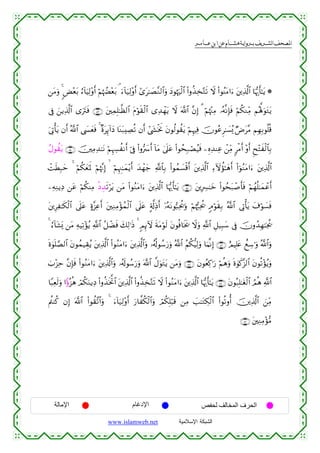 المصحف الشريف برواية هشام عن ابن عامر
* يَـٰٓأَيُّهَا ٱلَّذِينَ ءَامَنُوا۟ لَا تَتَّخِذُوا۟ ٱلْيَهُودَ وَٱلنَّصَـٰرَىٰٓ أَوْلِيَآءَ ۘ بَعْضُهُمْ أَوْلِيَآءُ بَعْضٍ ۚ وَمَن
يَتَوَلَّهُم مِّنكُمْ فَإِنَّهُۥ مِنْهُمْ ۗ إِنَّ ٱللَّهَ لَا يَهْدِى ٱلْقَوْمَ ٱلظَّـٰلِمِينَ ۝ فَتَرَى ٱلَّذِينَ فِى
قُلُوبِهِم مَّرَضٌ يُسَـٰرِعُونَ فِيهِمْ يَقُولُونَ نَخْشَىٰٓ أَن تُصِيبَنَا دَآئِرَةٌ ۚ فَعَسَى ٱللَّهُ أَن يَأْتِىَ
بِٱلْفَتْحِ أَوْ أَمْرٍ مِّنْ عِندِهِۦ فَيُصْبِحُوا۟ عَلَىٰ مَآ أَسَرُّوا۟ فِىٓ أَنفُسِهِمْ نَـٰدِمِينَ ۝ يَقُولُ
ٱلَّذِينَ ءَامَنُوٓا۟ أَهَـٰٓؤُلَآءِ ٱلَّذِينَ أَقْسَمُوا۟ بِٱللَّهِ جَهْدَ أَيْمَـٰنِهِمْ ۙ إِنَّهُمْ لَمَعَكُمْ ۚ حَبِطَتْ
أَعْمَـٰلُهُمْ فَأَصْبَحُوا۟ خَـٰسِرِينَ ۝ يَـٰٓأَيُّهَا ٱلَّذِينَ ءَامَنُوا۟ مَن يَرْتَدِدْ مِنكُمْ عَن دِينِهِۦ
فَسَوْفَ يَأْتِى ٱللَّهُ بِقَوْمٍ يُحِبُّهُمْ وَيُحِبُّونَهُۥٓ أَذِلَّةٍ عَلَى ٱلْمُؤْمِنِينَ أَعِزَّةٍ عَلَى ٱلْكَـٰفِرِينَ
يُجَـٰهِدُونَ فِى سَبِيلِ ٱللَّهِ وَلَا يَخَافُونَ لَوْمَةَ لَآئِمٍ ۚ ذَٰلِكَ فَضْلُ ٱللَّهِ يُؤْتِيهِ مَن يَشَآءُ ۚ
وَٱللَّهُ وَٰسِعٌ عَلِيمٌ ۝ إِنَّمَا وَلِيُّكُمُ ٱللَّهُ وَرَسُولُهُۥ وَٱلَّذِينَ ءَامَنُوا۟ ٱلَّذِينَ يُقِيمُونَ ٱلصَّلَوٰةَ
وَيُؤْتُونَ ٱلزَّكَوٰةَ وَهُمْ رَٰكِعُونَ ۝ وَمَن يَتَوَلَّ ٱللَّهَ وَرَسُولَهُۥ وَٱلَّذِينَ ءَامَنُوا۟ فَإِنَّ حِزْبَ
ٱللَّهِ هُمُ ٱلْغَـٰلِبُونَ ۝ يَـٰٓأَيُّهَا ٱلَّذِينَ ءَامَنُوا۟ لَا تَتَّخِذُوا۟ ٱلَّذِينَ ٱتَّخَذُوا۟ دِينَكُمْ هُزُؤًا وَلَعِبًا
مِّنَ ٱلَّذِينَ أُوتُوا۟ ٱلْكِتَـٰبَ مِن قَبْلِكُمْ وَٱلْكُفَّارَ أَوْلِيَآءَ ۚ وَٱتَّقُوا۟ ٱللَّهَ إِن كُنتُم
مُّؤْمِنِينَ ۝
الحرف المخالف لحفص الإدغام الإمالة
الشبكة الإسلامية www.islamweb.net